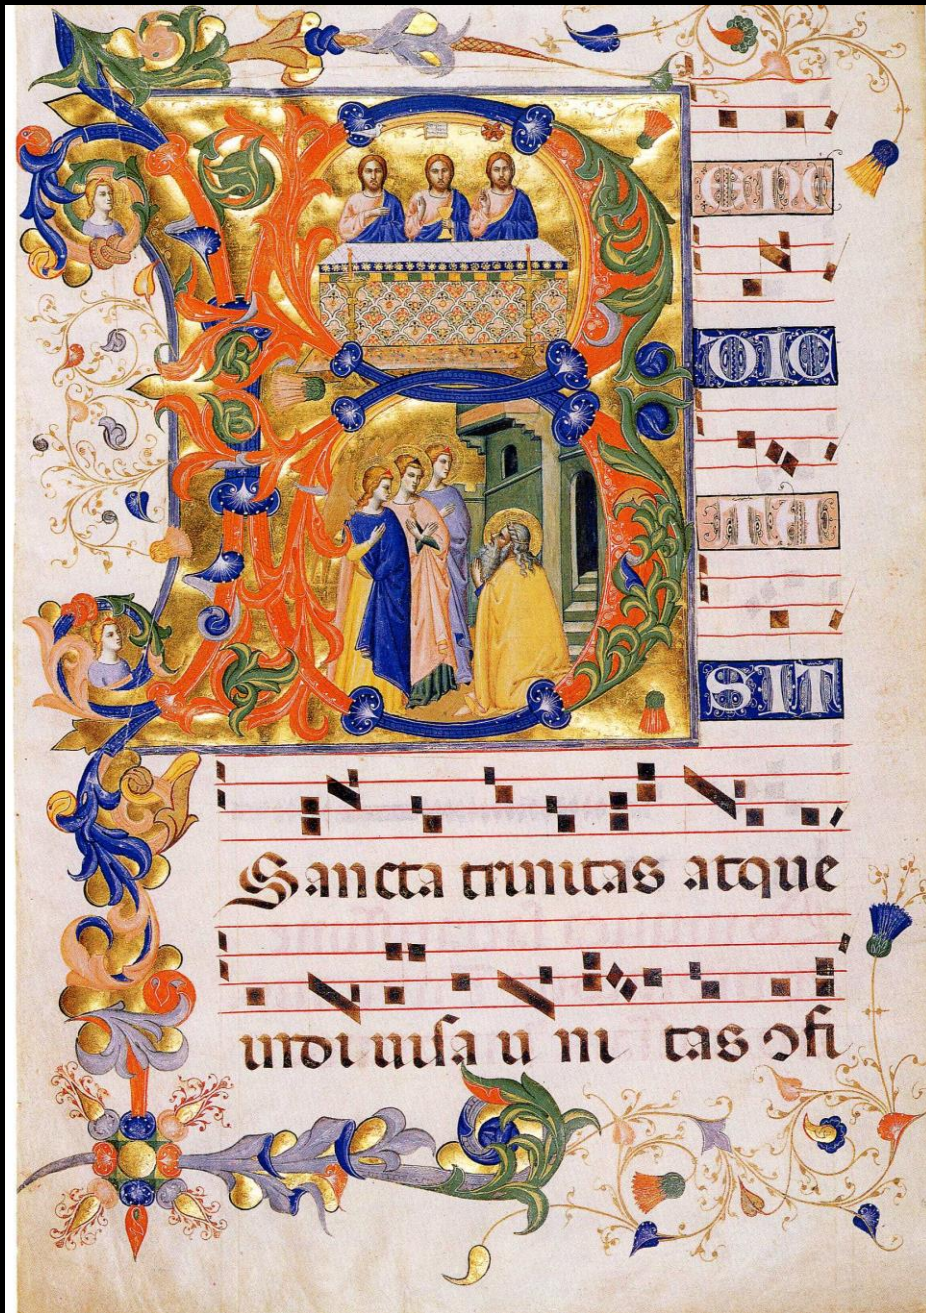 B
ENE
DIC
TA
SIT
Sancta trinitas atque
indi uisa u ni tas ꝯfi